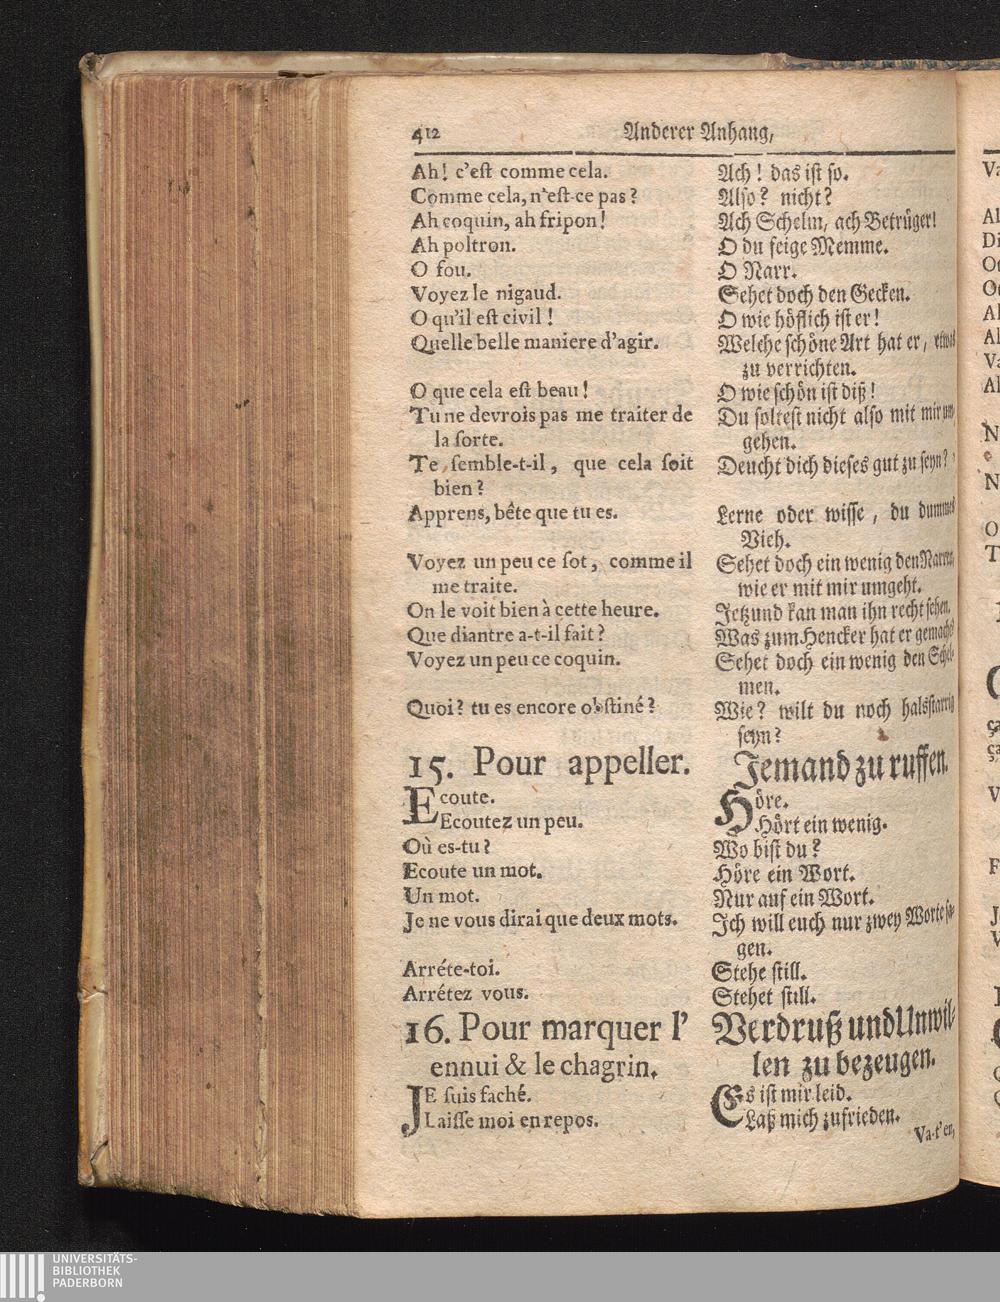 412
Anderer Anhang,
Ah! c'est comme cela.
Comme cela, n'est-ce pas?
Ah coquin, ah fripon!
Ah poltron.
O fou.
Voyez le nigaud.
O qu'il est civil!
Quelle belle maniere d'agir.
O que cela est beau!
Tu ne devrois pas me traiter de
la sorte.
Te semble-t-il, que cela soit
bien?
Apprens, bête que tu es.
Voyez un peu ce sot, comme il
me traite.
On le voit bien à cette heure.
Que diantre a-t-il fait?
Voyez un peu ce coquin.
Quoi? tu es encore obstiné?
15. Pour appeller.
Ecoute.
Ecoutez un peu.
Où es-tu?
Ecoute un mot.
Un mot.
Je ne vous dirai que deux mots.
Arréte-toi.
Arrétez vous.
16. Pour marquer l'
ennui & le chagrin.
JE suis faché.
Laisse moi en repos.
Ach! das ist so.
Also? nicht?
Ach Schelm, ach Betrüger!
O du feige Memme.
O Narr.
Sehet doch den Gecken.
O wie höflich ist er!
Welche schöne Art hat er, etwas
zu verrichten.
O wie schön ist diß!
Du soltest nicht also mit mir um
gehen.
Deucht dich dieses gut zu seyn?
Lerne oder wisse, du dummes
Vieh.
Sehet doch ein wenig den Narren,
wie er mit mir umgeht.
Jetzund kan man ihn recht sehen.
Was zum Hencker hat er gemacht?
Sehet doch ein wenig den Schel-
men.
Wie? wilt du noch halsstarrig
seyn?
Jemand zu ruffen.
Höre.
Hört ein wenig.
Wo bist du?
Höre ein Wort.
Nur auf ein Wort.
Ich will euch nur zwey Worte sa-
gen.
Stehe still.
Stehet still.
Verdruß und Unwil-
len zu bezeugen.
Es ist mir leid.
Laß mich zufrieden.
Va-t'en,
UNIVERSITÄTS-
BIBLIOTHEK
PADERBORN